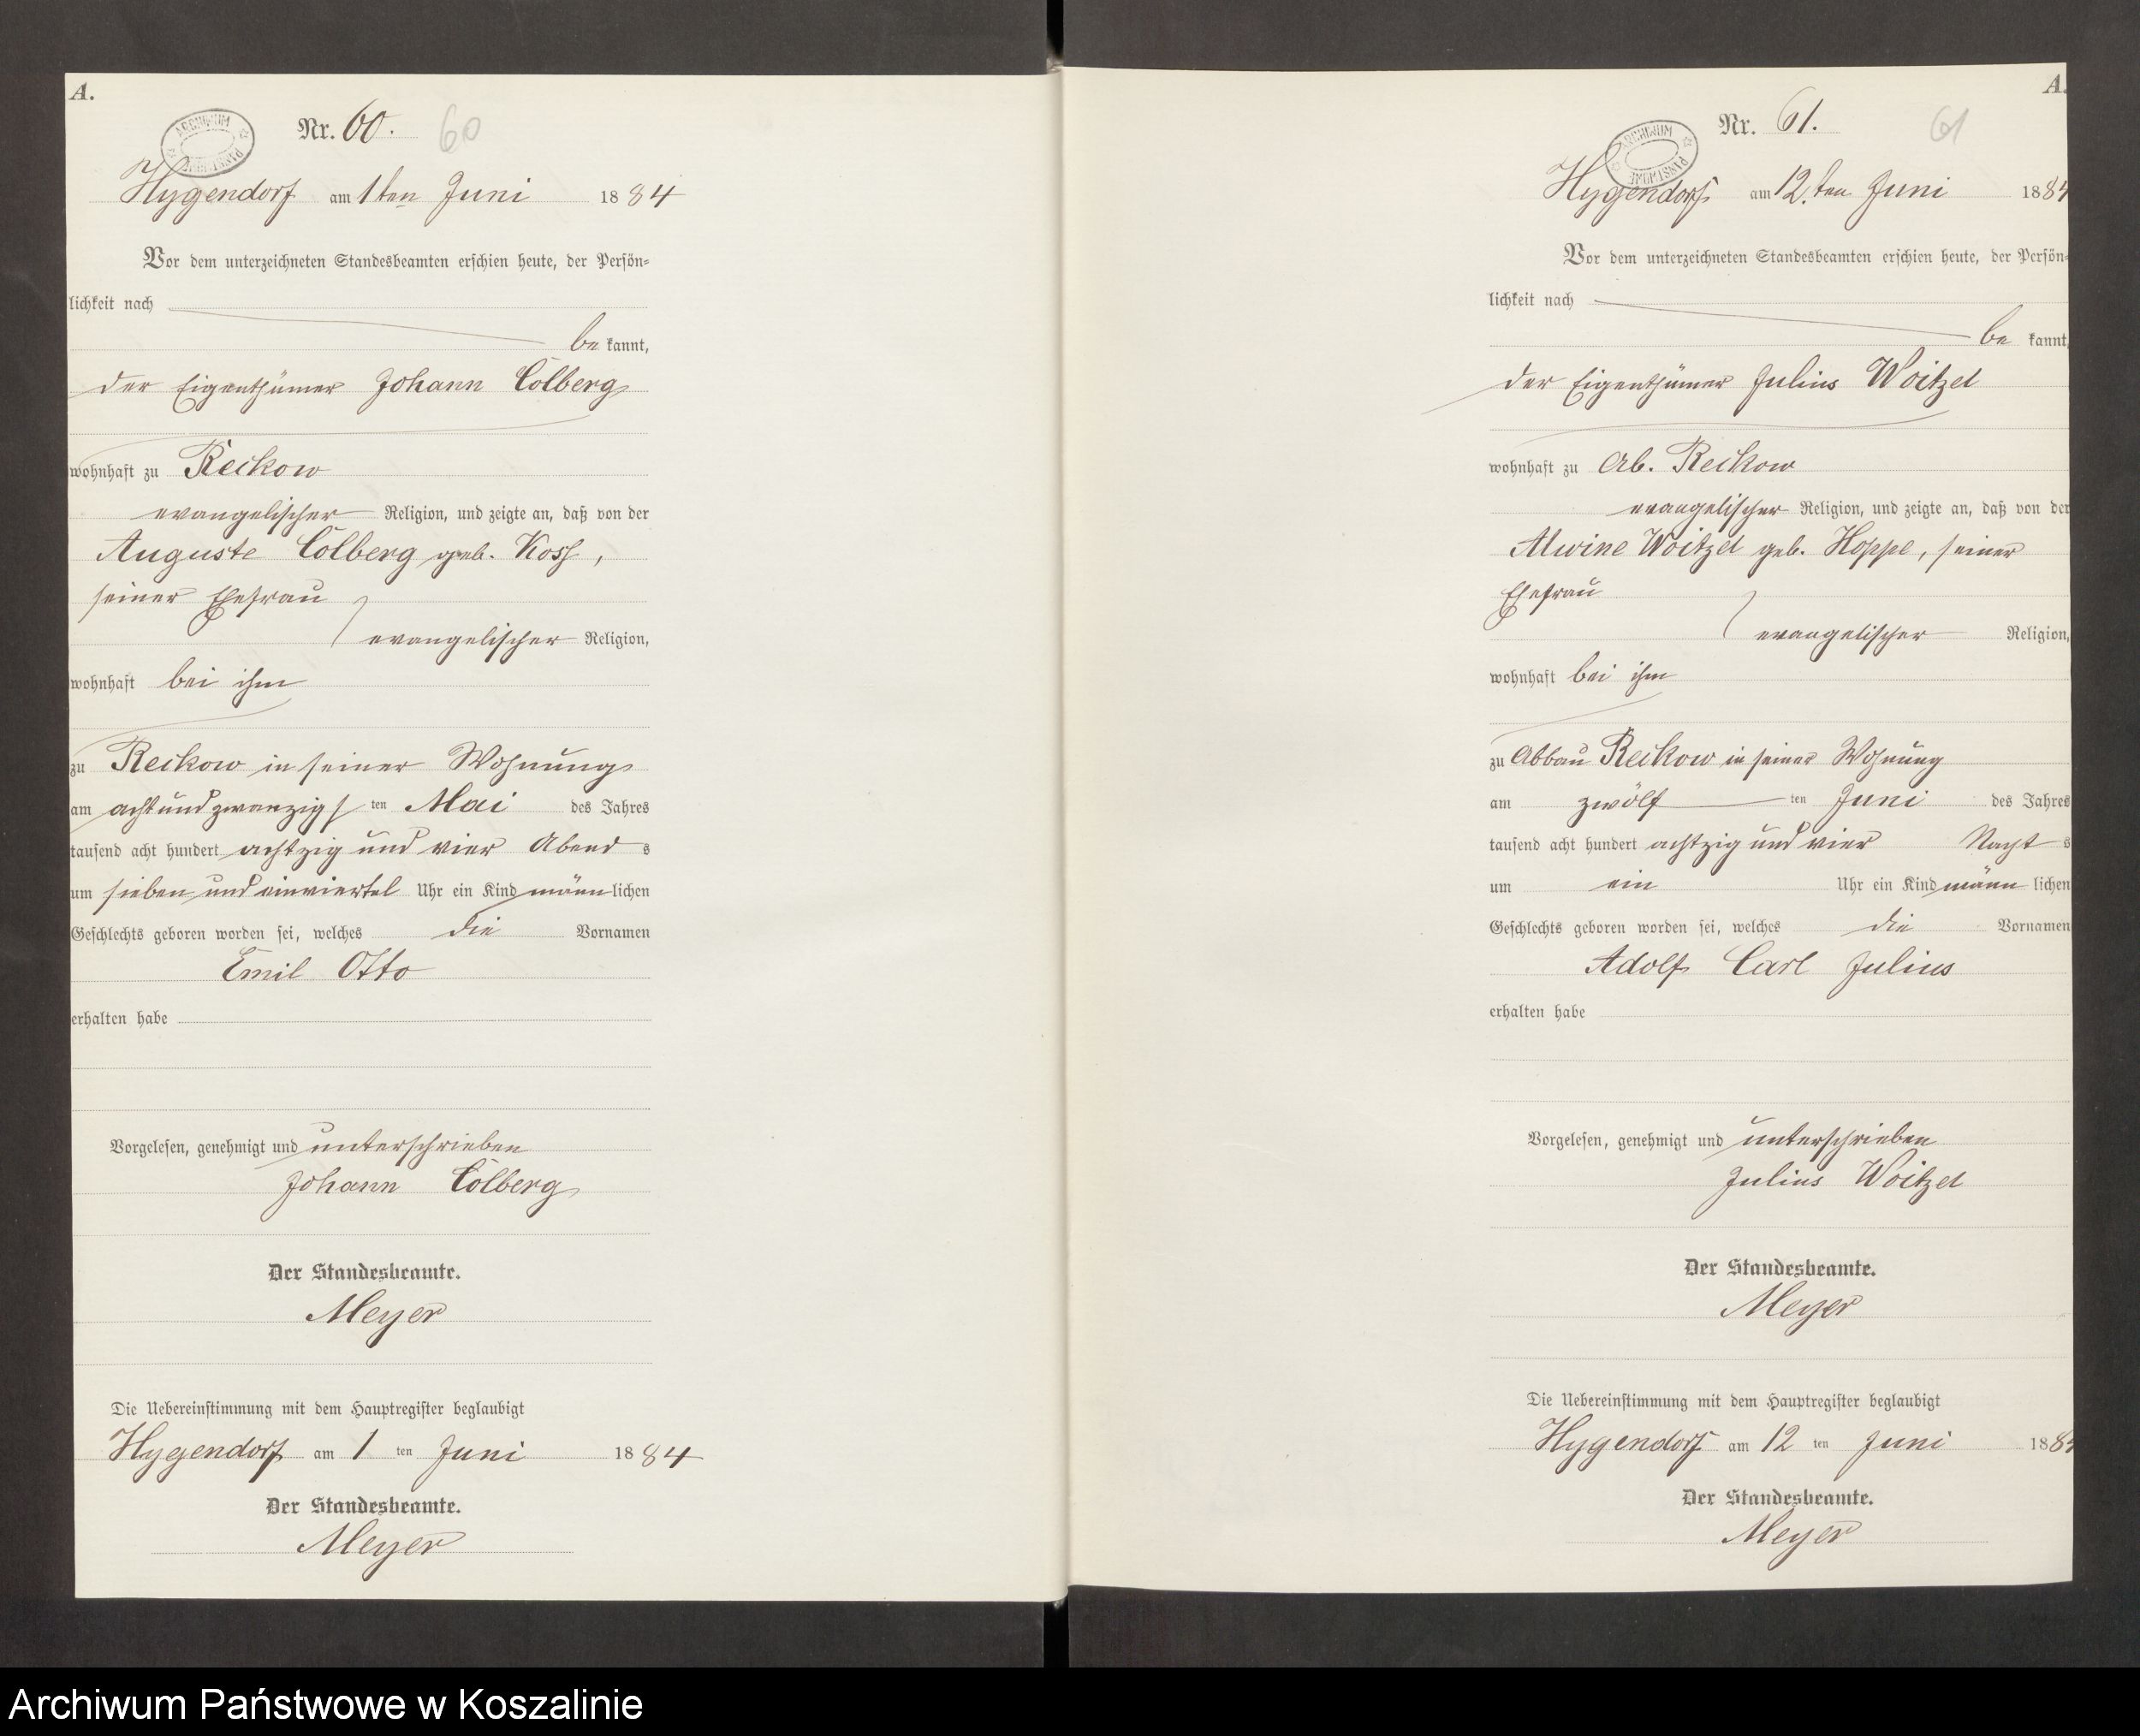 A.
Nr. 60. 60
ARCHIWUM PAŃSTWOWE
Hygendorf am 1ten Juni 1884
Vor dem unterzeichneten Standesbeamten erschien heute, der Persön=
lichkeit nach
be kannt,
der Eigenthümer Johann Colberg
wohnhaft zu Reckow
evangelischer Religion, und zeigte an, daß von der
Auguste Colberg geb. Koss,
seiner Ehefrau
evangelischer Religion,
wohnhaft bei ihm
zu Reckow in seiner Wohnung
am achtundzwanzigsten Mai des Jahres
tausend acht hundert achtzig und vier Abends
um sieben und einviertel Uhr ein Kind männlichen
Geschlechts geboren worden sei, welches die Vornamen
Emil Otto
erhalten habe
Vorgelesen, genehmigt und unterschrieben
Johann Colberg
Der Standesbeamte.
Meyer
Die Uebereinstimmung mit dem Hauptregister beglaubigt
Hygendorf am 1 ten Juni 1884
Der Standesbeamte.
Meyer
A.
Nr. 61. 61
ARCHIWUM PAŃSTWOWE
Hygendorf am 12.ten Juni 1884
Vor dem unterzeichneten Standesbeamten erschien heute, der Persön=
lichkeit nach
be kannt,
der Eigenthümer Julius Woitzel
wohnhaft zu Ab. Reckow
evangelischer Religion, und zeigte an, daß von der
Alwine Woitzel geb. Hoppe, seiner
Ehefrau
evangelischer Religion,
wohnhaft bei ihm
zu Abbau Reckow in seiner Wohnung
am zwölf ten Juni des Jahres
tausend acht hundert achtzig und vier Nachts
um ein Uhr ein Kind männlichen
Geschlechts geboren worden sei, welches die Vornamen
Adolf Carl Julius
erhalten habe
Vorgelesen, genehmigt und unterschrieben
Julius Woitzel
Der Standesbeamte.
Meyer
Die Uebereinstimmung mit dem Hauptregister beglaubigt
Hygendorf am 12 ten Juni 1884
Der Standesbeamte.
Meyer
Archiwum Państwowe w Koszalinie